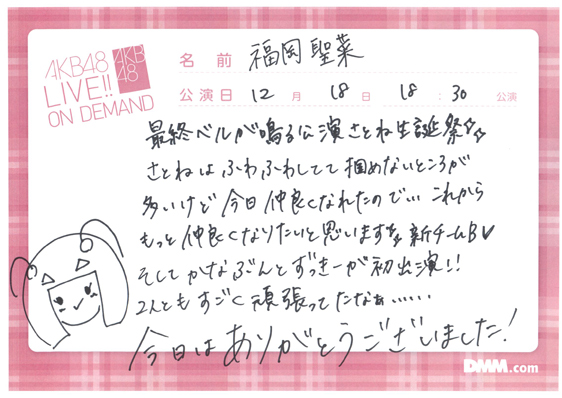 AKB48
LIVE!!
ON DEMAND
AKB
48
名前 福岡聖菜
公演日 12月 18日 18:30 公演
最終ベルが鳴る公演さとね生誕祭☆☆
さとねはふわふわしてて掴めないところが
多いけど今日仲良くなれたので… これから
もっと仲良くなりたいと思います☆ 新チームB♡
そしてかなぶんとずっきーが初出演!!
2人ともすごく頑張ってたなぁ……
今日はありがとうございました!
DMM.com